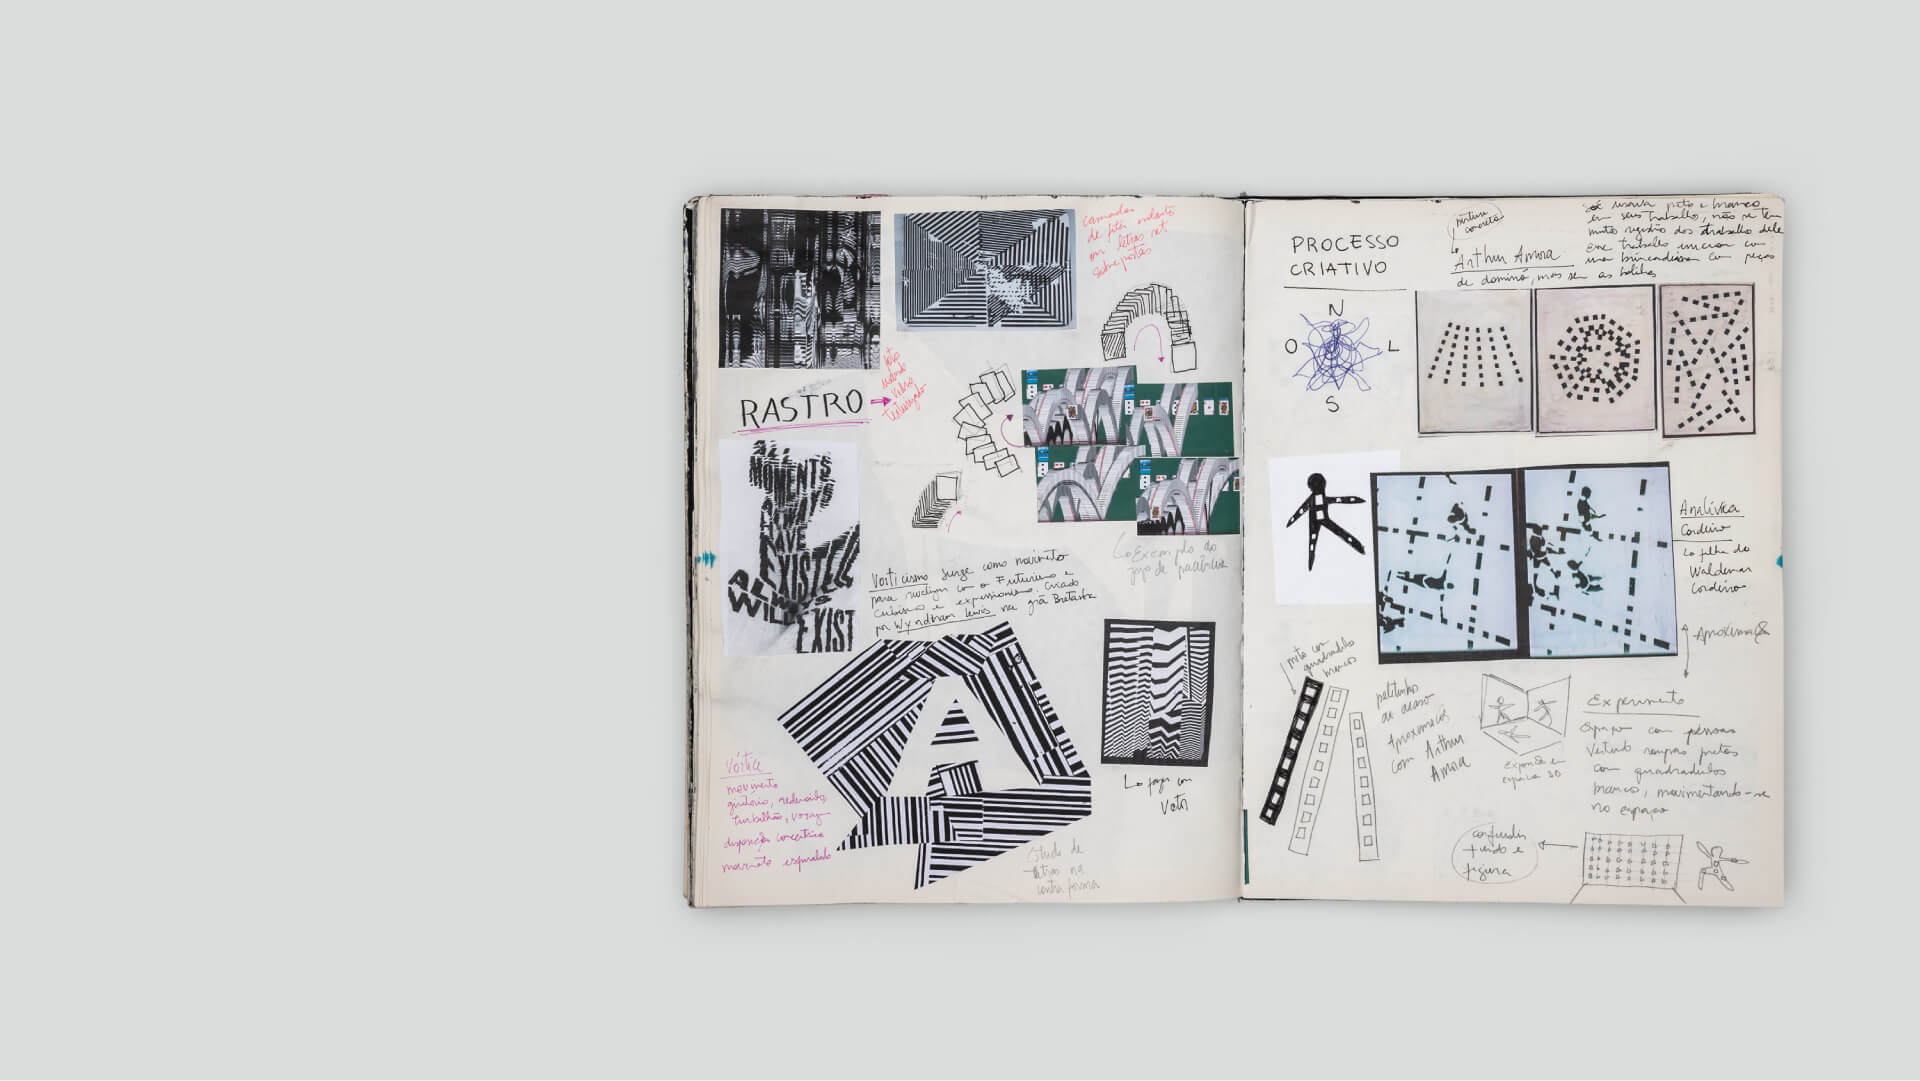 camadas
de fita
em letras set
sobrepostas
RASTRO
foto
usando
vidro
texturizado
MOMENTS
ALWAYS
HAVE
EXISTED
ALWAYS
WILL
EXIST
Exemplo do
jogo de paciência
Vorticismo surge como movimento
para com o Futurismo e
Cubismo e expressionismo. Criado
por Wyndham Lewis na grã Bretanha
Vórtice
movimento
giratório, redemoinho,
turbilhão,
disposição concêntrica
espiralado
Lo fazer com
Vetor
Estudo de
letras na
contra forma
PROCESSO
CRIATIVO
N
O L
S
pintura
concreta
Arthur Amora
Só usava preto e branco
em seus trabalho, não se tem
muito registro dos trabalho dele
Esse trabalho iniciou com
uma brincadeira com peças
de dominó, mas sem as bolinhas
Analívia
Cordeiro
Lo filha do
Waldemar
Cordeiro
Aproximação
preto com
quadrados
brancos
palitinho
do acaso
com Arthur
Amora
espaço 3D
Experimento
Espaço com pessoas
Vestindo roupas pretas
com quadrados
branco, movimentando-se
no espaço
fundo e
figura